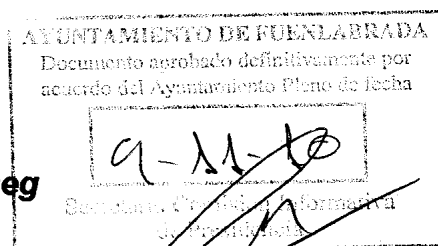 AYUNTAMIENTO DE FUENLABRADA
Documento aprobado definitivamente por
acuerdo del Ayuntamiento Pleno de fecha
9-11-10
eg
Comisión Informativa
de Presidencia